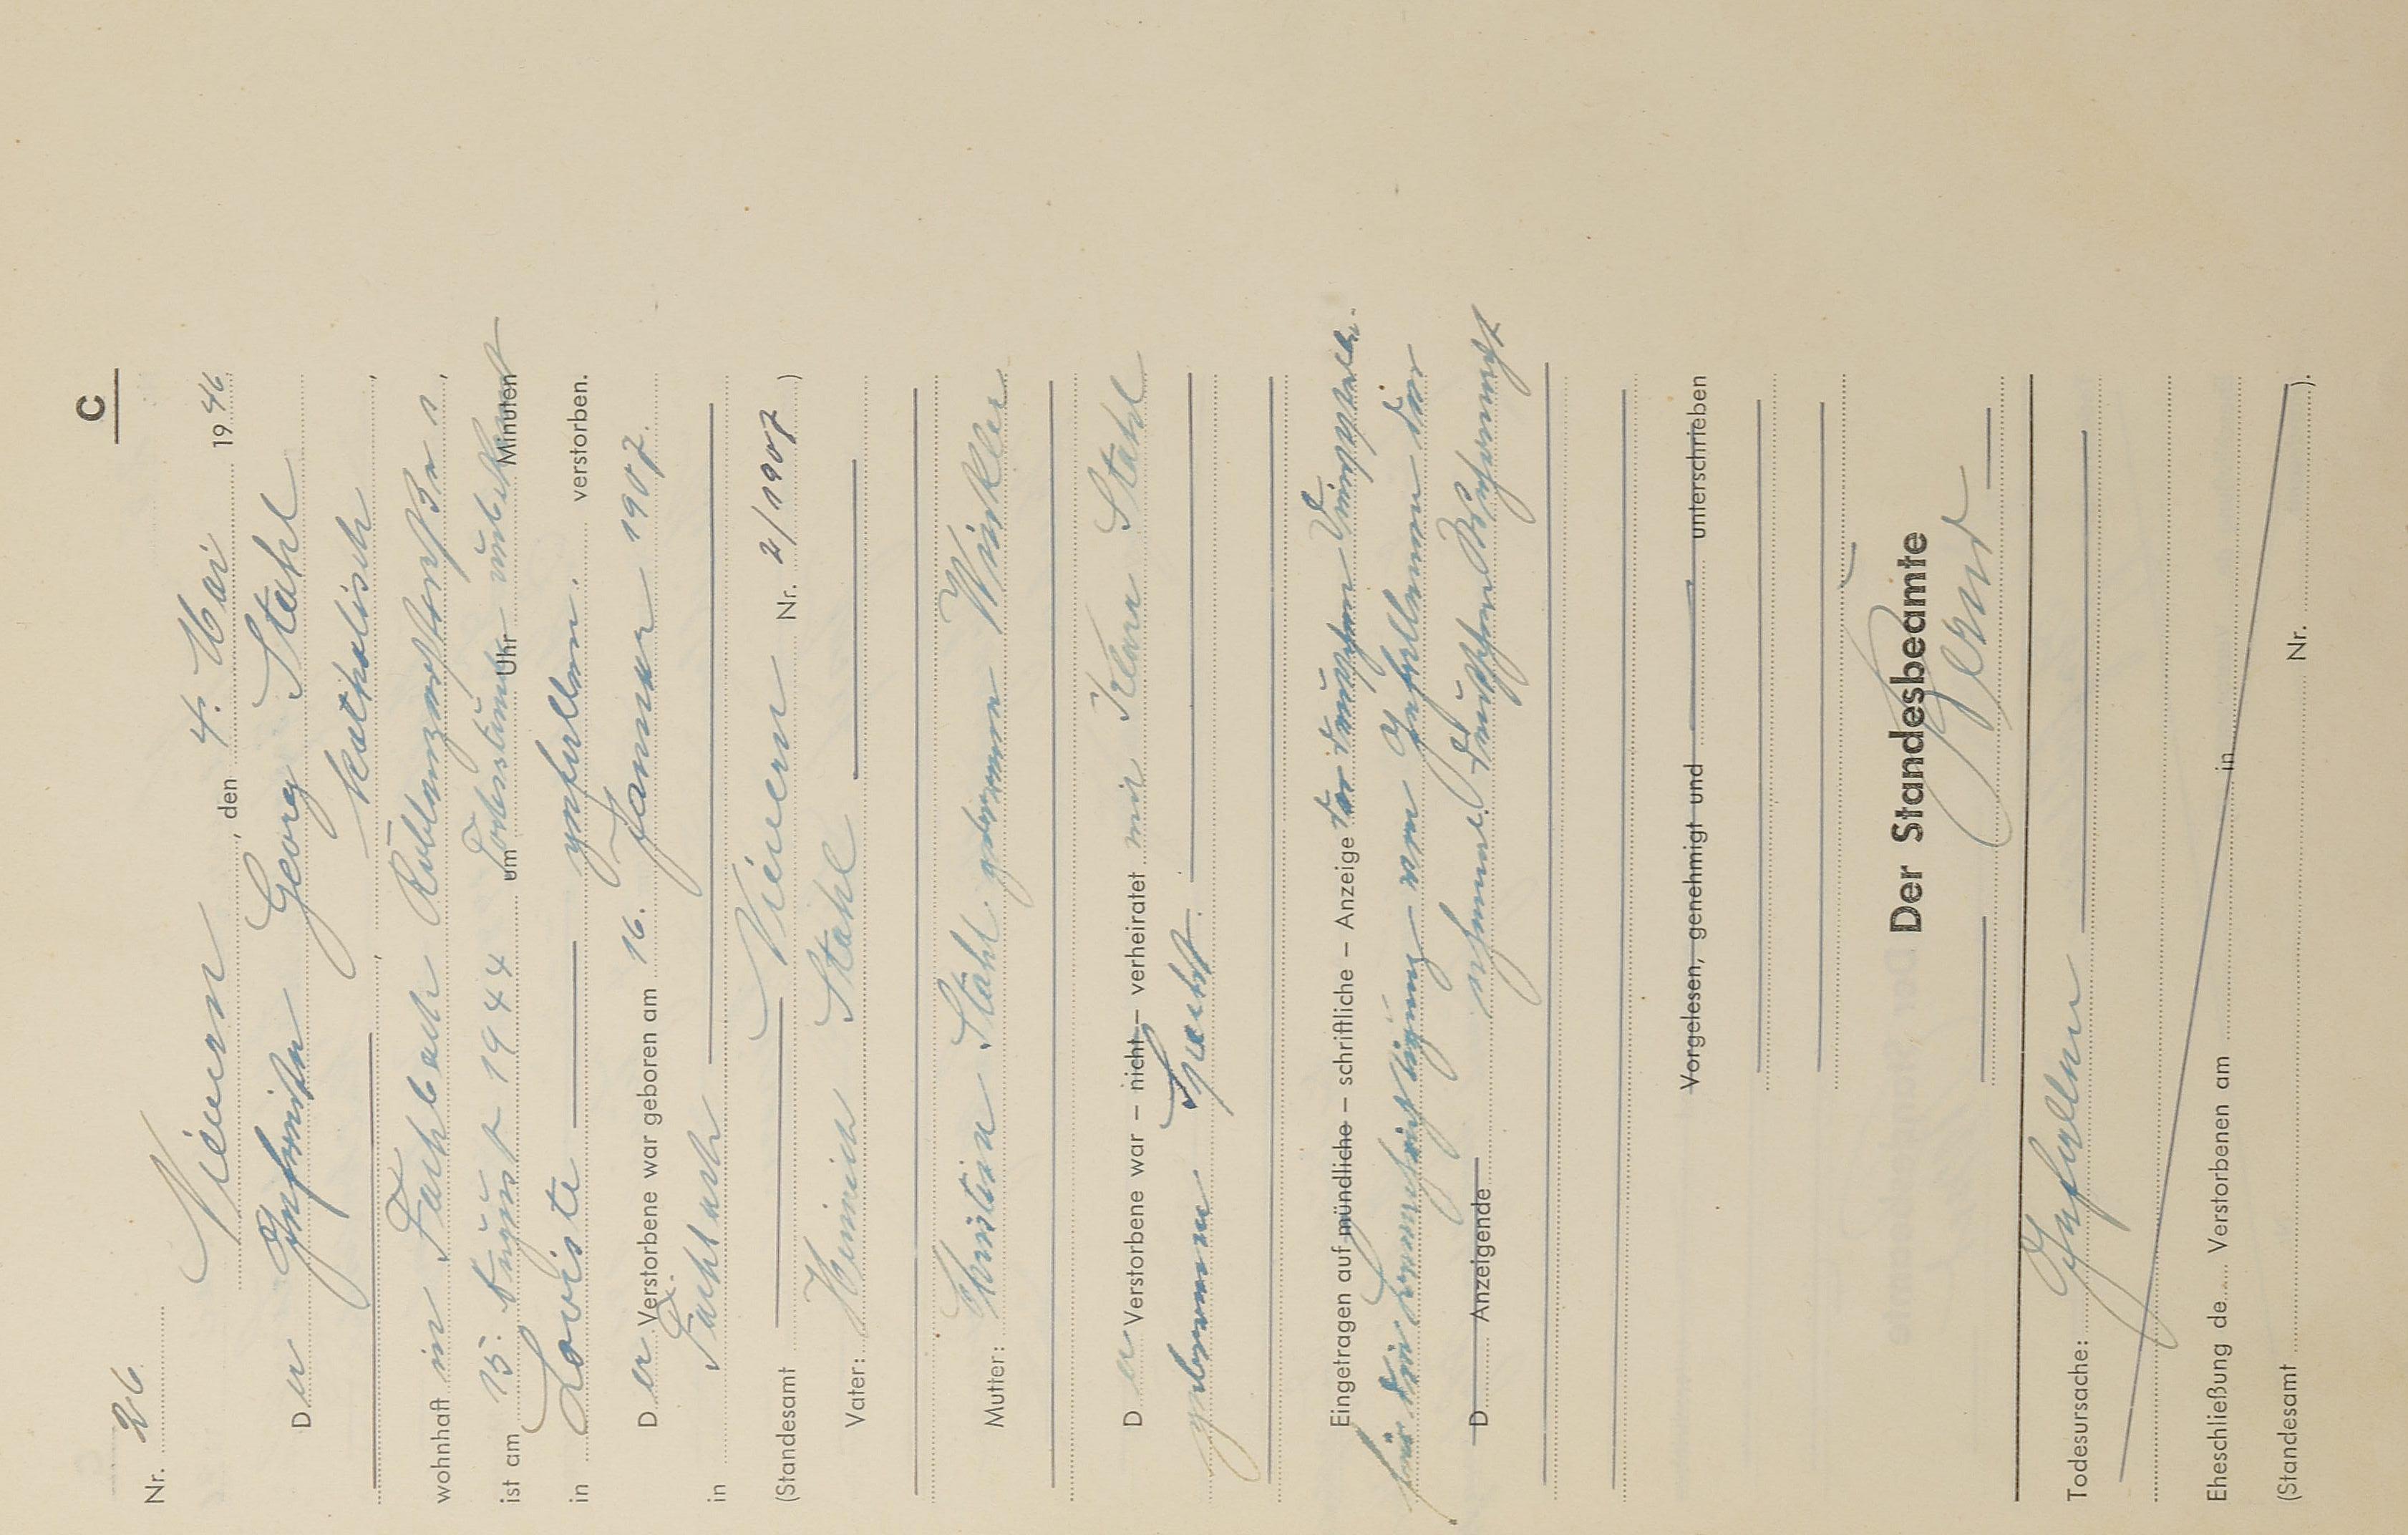 C
Nr. 26
Nievern, den 4. Mai 1946
Der Gefreite Georg Stahl
katholisch
wohnhaft in Fachbach Koblenzerstraße
ist am 15. August 1944 um Todesstunde Uhr unbekannt Minuten
in Loviste gefallen. verstorben.
Der Verstorbene war geboren am 16. Januar 1907.
in Fachbach
(Standesamt Nievern Nr. 2/1907)
Vater: Heinrich Stahl
Mutter: Christine Stahl geborene Winkler
Der Verstorbene war – nicht – verheiratet mit Klara Stahl
geborene
Eingetragen auf mündliche – schriftliche – Anzeige der deutschen Dienststelle
für die Benachrichtigung von Gefallenen der
D Anzeigende ehemal. deutschen Wehrmacht
Vorgelesen, genehmigt und unterschrieben
Der Standesbeamte
Todesursache: Gefallen
Eheschließung de Verstorbenen am in
(Standesamt Nr. ).